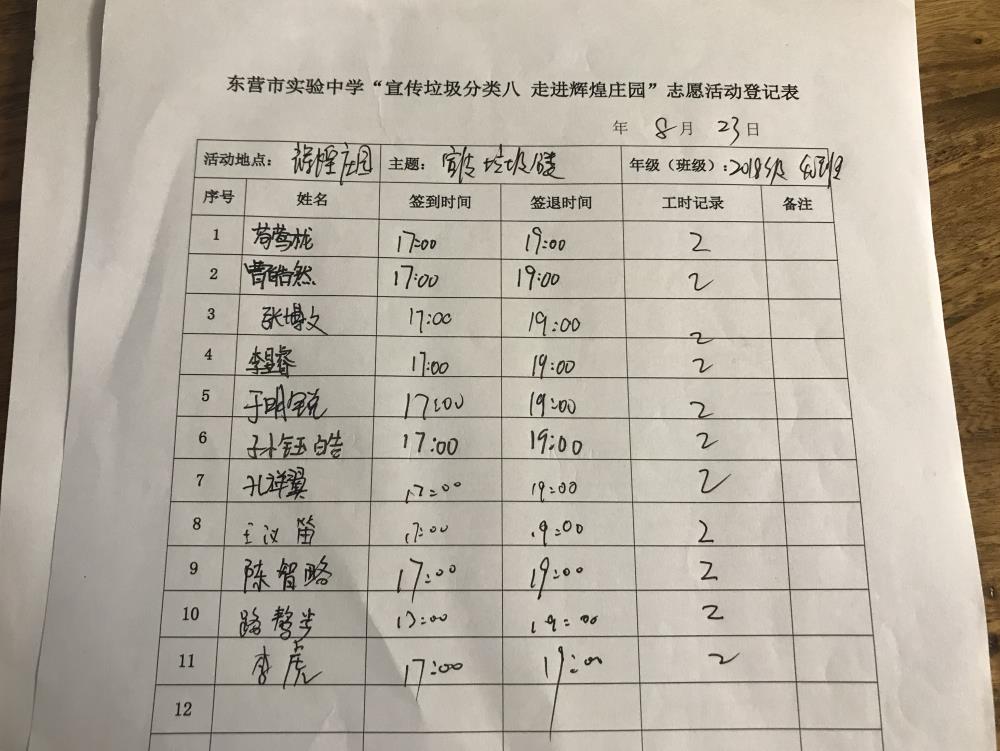 东营市实验中学“宣传垃圾分类八 走进辉煌庄园”志愿活动登记表
年 8月 23日
活动地点： 辉煌庄园 主题： 宣传垃圾 年级（班级）：2018级
序号 姓名 签到时间 签退时间 工时记录 备注
1 17:00 19:00 2
2 曹皓然 17:00 19:00 2
3 张博文 17:00 19:00 2
4 李昱睿 17:00 19:00 2
5 于明锐 17:00 19:00 2
6 孙钰皓 17:00 19:00 2
7 孔祥翼 17:00 19:00 2
8 王议笛 17:00 19:00 2
9 陈智略 17:00 19:00 2
10 路 19:00 2
11 李虎 17:00 19:00 2
12